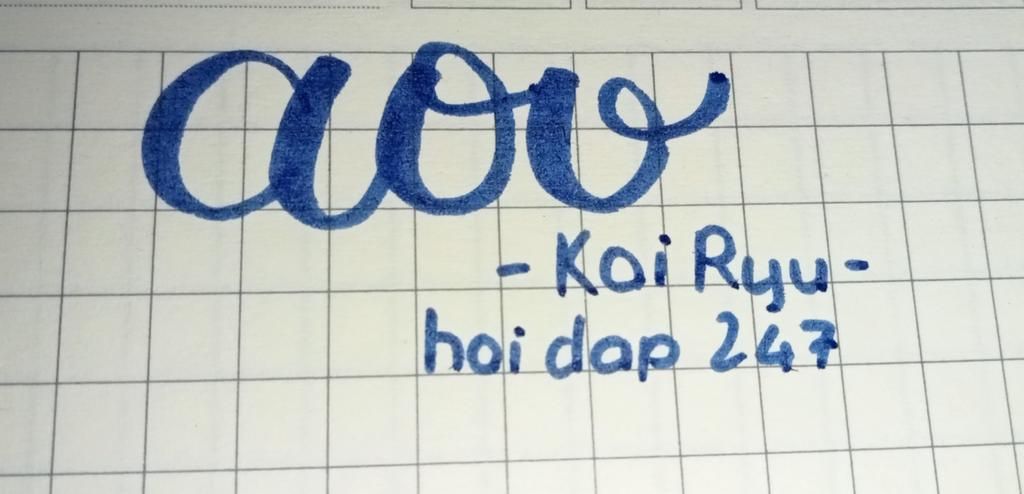 aov
- Kai Ryu -
hoi dap 247